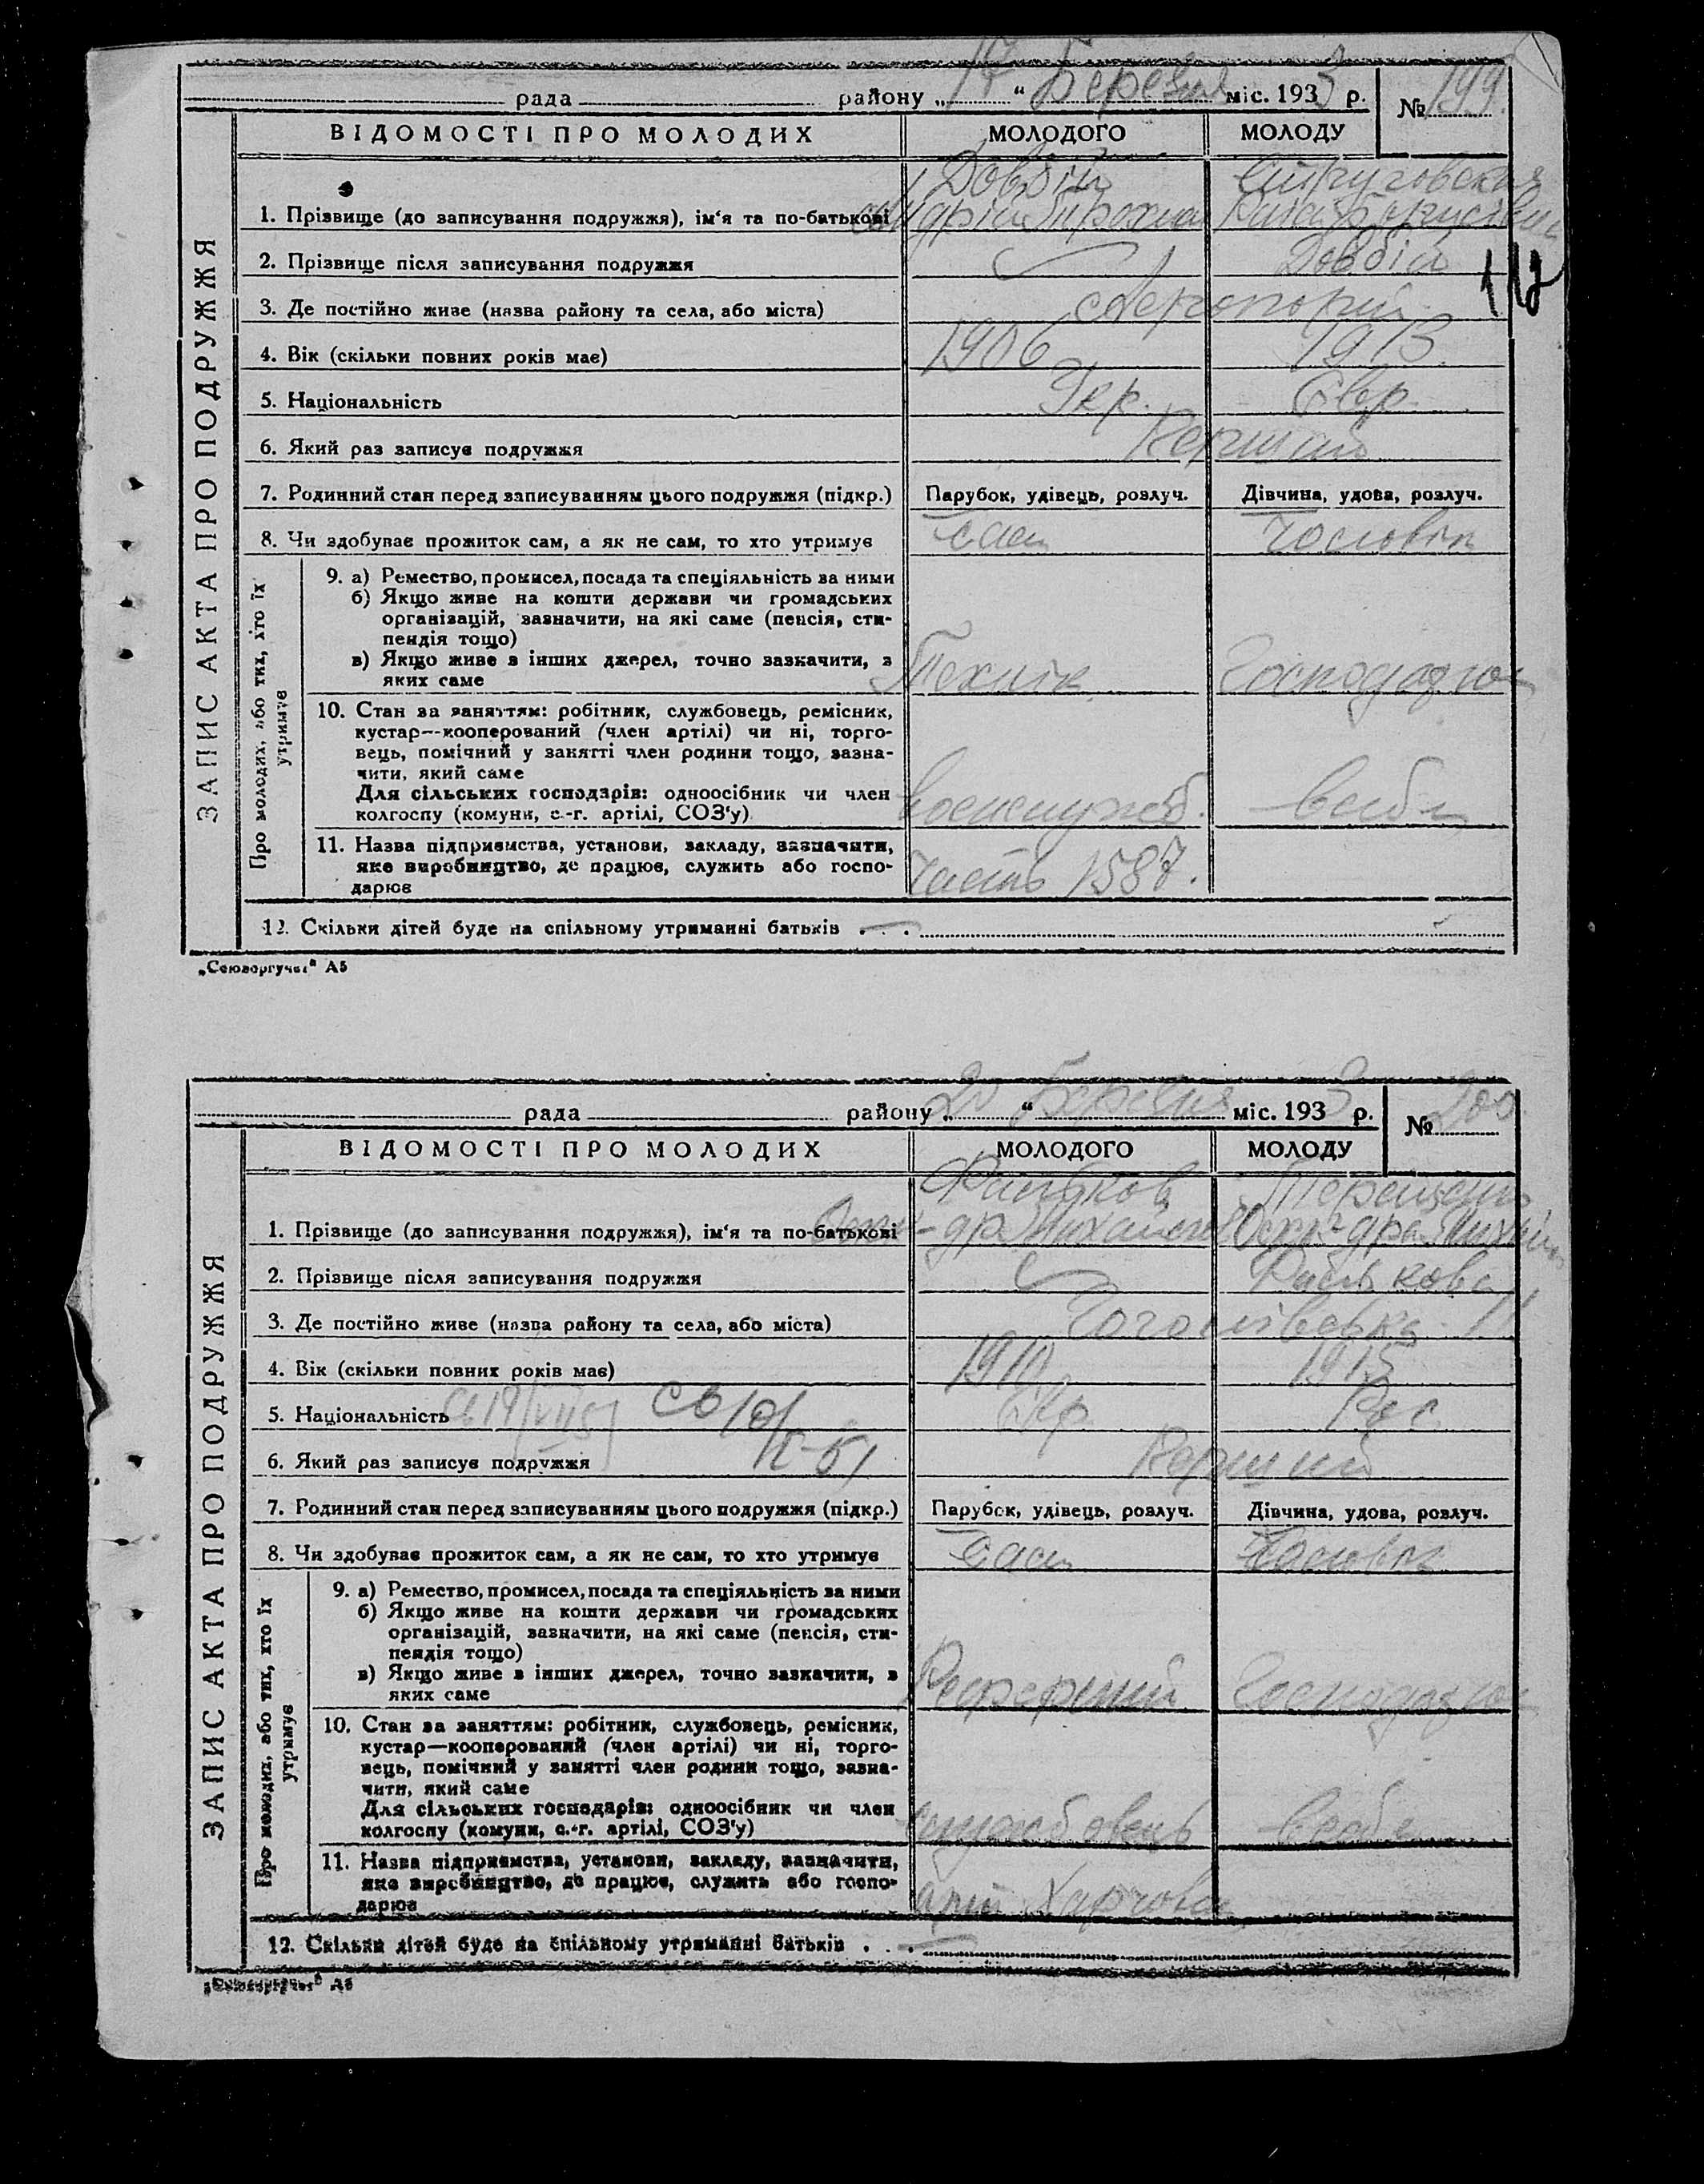 рада району „17“ Березня міс. 1933 р. № 199
ВІДОМОСТІ ПРО МОЛОДИХ МОЛОДОГО МОЛОДУ
ЗАПИС АКТА ПРО ПОДРУЖЖЯ
Довбій
1. Прізвище (до записування подружжя), ім‘я та по-батькові
2. Прізвище після записування подружжя Довбій
112
3. Де постійно живе (назва району та села, або міста)
4. Вік (скільки повних років має) 1906 1913
5. Національність Укр. Євр.
6. Який раз записує подружжя Перший
7. Родинний стан перед записуванням цього подружжя (підкр.) Парубок, удівець, розлуч. Дівчина, удова, розлуч.
8. Чи здобуває прожиток сам, а як не сам, то хто утримує Сам Чоловік
Про молодих, або тих, хто їх утримує
9. а) Ремество, промисел, посада та спеціяльність за ними
б) Якщо живе на кошти держави чи громадських
організацій, зазначити, на які саме (пенсія, сти-
пендія тощо)
в) Якщо живе з інших джерел, точно зазначити, з
яких саме Технік
10. Стан за заняттям: робітник, службовець, ремісник,
кустар—кооперований (член артілі) чи ні, торго-
вець, помічний у занятті член родини тощо, зазна-
чити, який саме
Для сільських господарів: одноосібник чи член
колгоспу (комуни, с.-г. артілі, СОЗ'у)
11. Назва підприємства, установи, закладу, зазначити,
яке виробництво, де працює, служить або госпо-
дарює Часть 1587.
12. Скільки дітей буде на спільному утриманні батьків . — .
„Союзоргучет“ А5
рада району „20“ Березня міс. 1933 р. № 200
ВІДОМОСТІ ПРО МОЛОДИХ МОЛОДОГО МОЛОДУ
ЗАПИС АКТА ПРО ПОДРУЖЖЯ
1. Прізвище (до записування подружжя), ім‘я та по-батькові
2. Прізвище після записування подружжя
3. Де постійно живе (назва району та села, або міста) Гоголівська 11
4. Вік (скільки повних років має) 1910 1915
5. Національність Укр. Рос.
6. Який раз записує подружжя Перший
7. Родинний стан перед записуванням цього подружжя (підкр.) Парубок, удівець, розлуч. Дівчина, удова, розлуч.
8. Чи здобуває прожиток сам, а як не сам, то хто утримує Сам Чоловік
Про молодих, або тих, хто їх утримує
9. а) Ремество, промисел, посада та спеціяльність за ними
б) Якщо живе на кошти держави чи громадських
організацій, зазначити, на які саме (пенсія, сти-
пендія тощо)
в) Якщо живе з інших джерел, точно зазначити, з
яких саме
10. Стан за заняттям: робітник, службовець, ремісник,
кустар—кооперований (член артілі) чи ні, торго-
вець, помічний у занятті член родини тощо, зазна-
чити, який саме
Для сільських господарів: одноосібник чи член
колгоспу (комуни, с.-г. артілі, СОЗ'у) службовець
11. Назва підприємства, установи, закладу, зазначити,
яке виробництво, де працює, служить або госпо-
дарює
12. Скільки дітей буде на спільному утриманні батьків . — .
„Союзоргучет“ А5